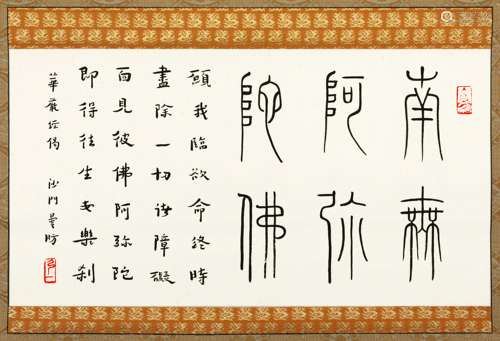 南無
阿弥
陀佛
願我臨欲命終時
盡除一切諸障礙
面見彼佛阿弥陀
即得往生安樂刹
華嚴經偈 沙門曇昉